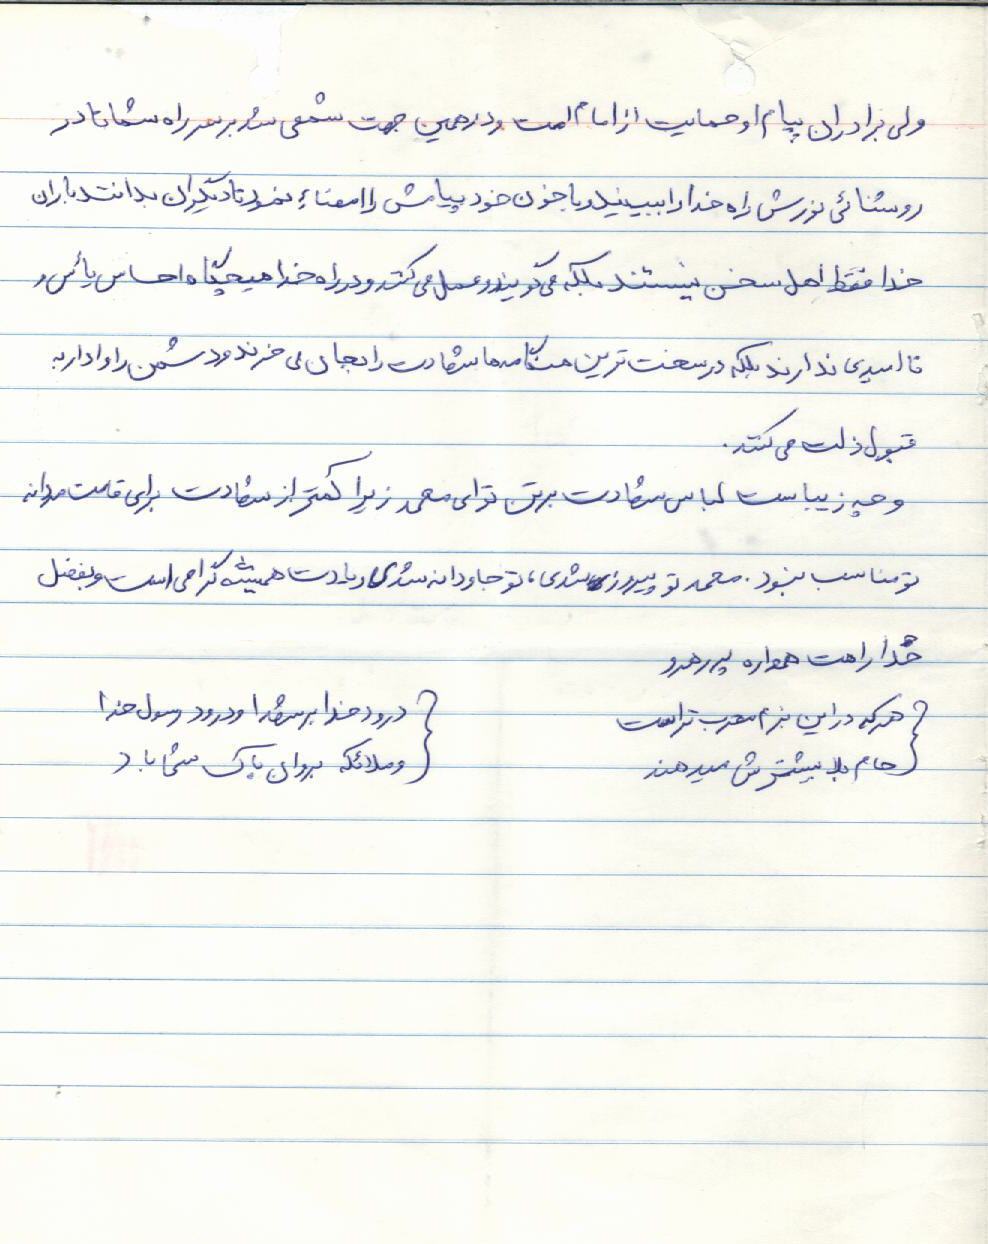 ولی برادران پیام او حمایت از امام است و در همین جهت شمعی شد بر سر راه شما تا در
روشنائی نورش راه خدا را ببینید و با خون خود پیامش را امضاء نمود تا دیگران بدانند یاران
خدا فقط اهل سخن نیستند بلکه می گویند و عمل می کنند و در راه خدا هیچگاه احساس یأس و
نا امیدی ندارند بلکه در سخت ترین هنگامه ها شهادت را بجان می خرند و دشمن را وادار به
قبول ذلت می کنند.
و چه زیباست لباس شهادت بر تن تو ای محمد زیرا کمتر از شهادت برای قامت مردانه
تو مناسب نبود. محمد تو پیروز شدی، تو جاودانه شدی و یادت همیشه گرامی است و بفضل
خدا راهت همواره پر رهرو
هر که در این بزم مقرب تر است
جام بلا بیشترش میدهند
درود خدا بر شهدا و درود رسول خدا
و ملائکه بروان پاک شما باد